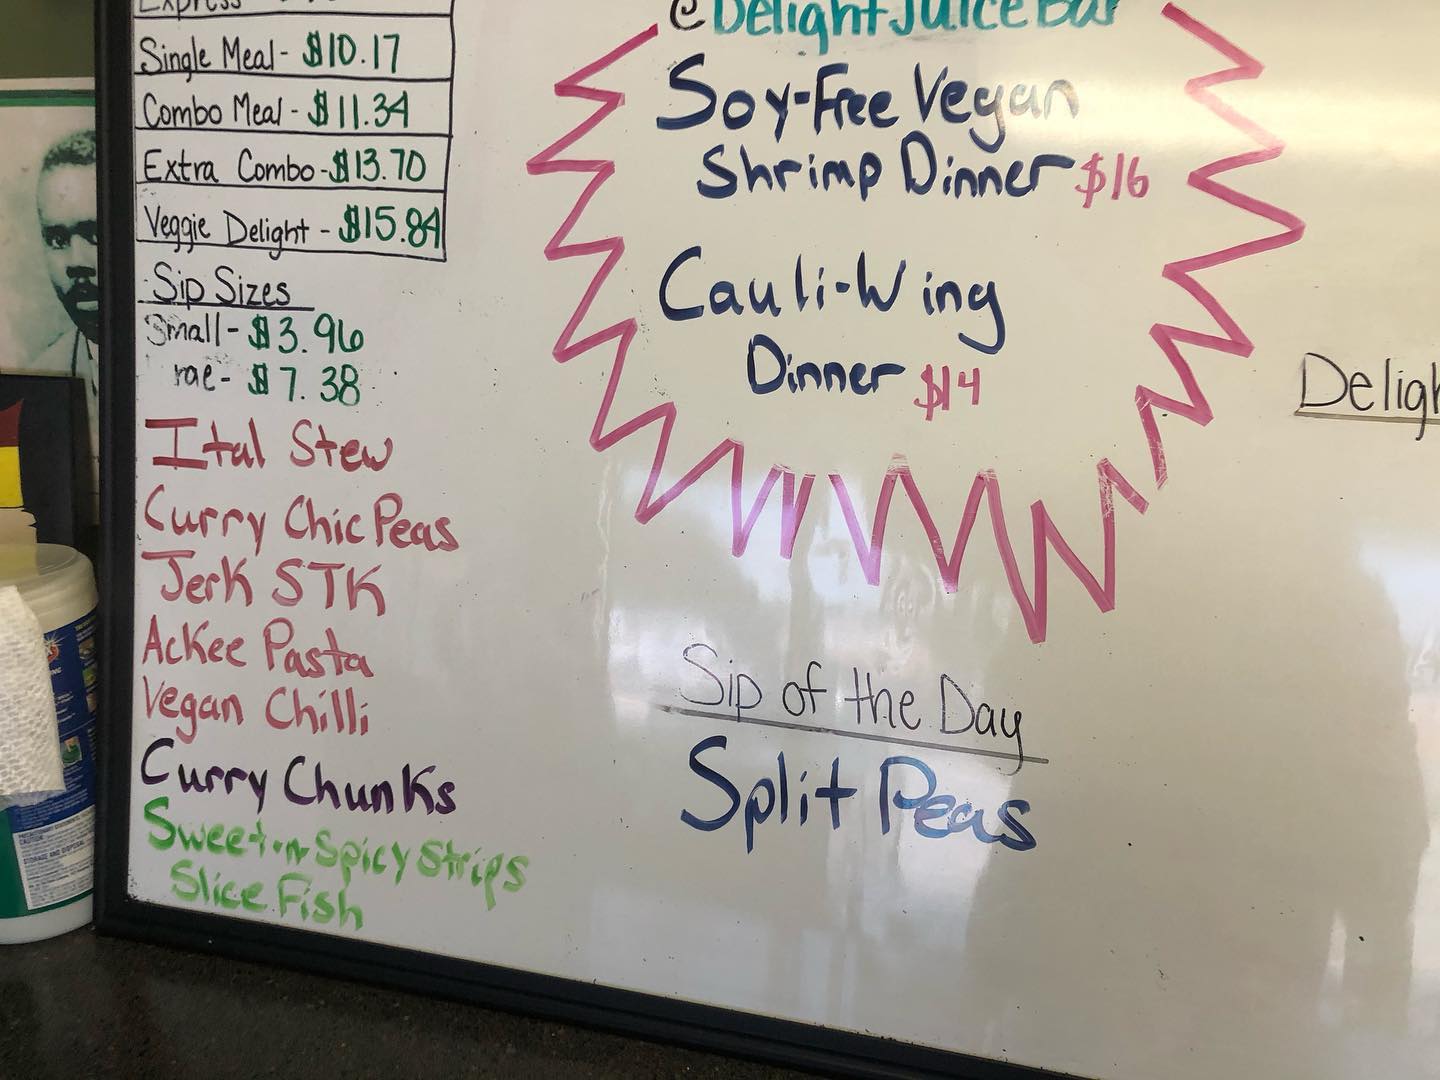 Express
Single Meal - $10.17
Combo Meal - $11.34
Extra Combo - $13.70
Veggie Delight - $15.84
Sip Sizes
Small - $3.96
rge - $7.38
Ital Stew
Curry Chic Peas
Jerk STK
Ackee Pasta
Vegan Chilli
Curry Chunks
Sweet-n-Spicy Strips
Slice Fish
@DelightJuiceBar
Soy-Free Vegan
Shrimp Dinner $16
Cauli-Wing
Dinner $14
Sip of the Day
Split Peas
Deligh